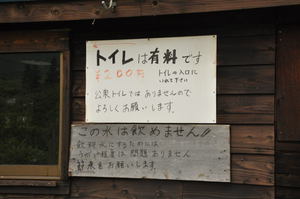 トイレは有料です
¥200円
トイレの入口に
いれて下さい
公衆トイレではありませんので
よろしくお願いします。
この水は飲めません!!
飲料水にするためには
うがい程度は問題ありません
節水をお願いします。